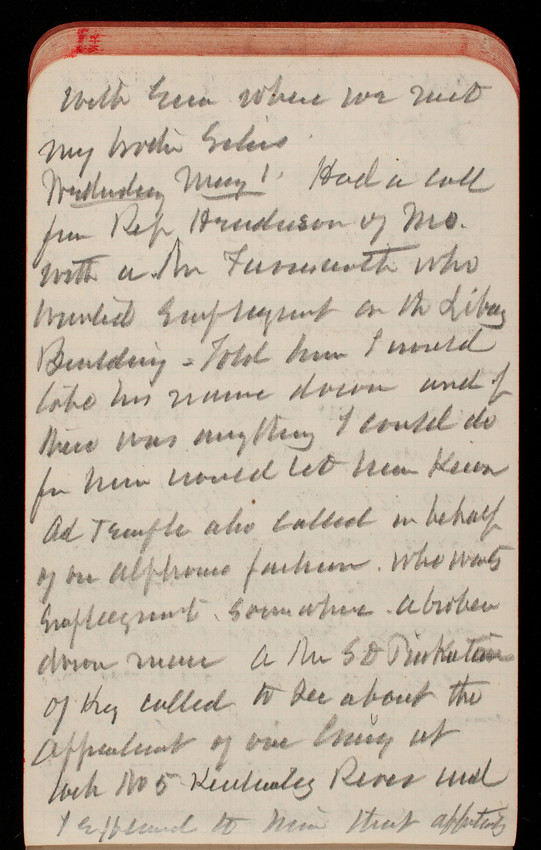 with Ecca where we met
my brother
Wednesday May 1. Had a call
from Rep Henderson of Mo.
with a Mr Farnsworth who
wanted Employment on the Library
Building - Told him I would
take his name down and if
there was anything I could do
for him would let him know
Ad Temple also called in behalf
of one Alphonso who wants
Employment somewhere. a broken
down man a Mr S D Pinkerton
of Ky called to see about the
appointment of one Craig at
Lock No 5 Kentucky River and
I explained to him that